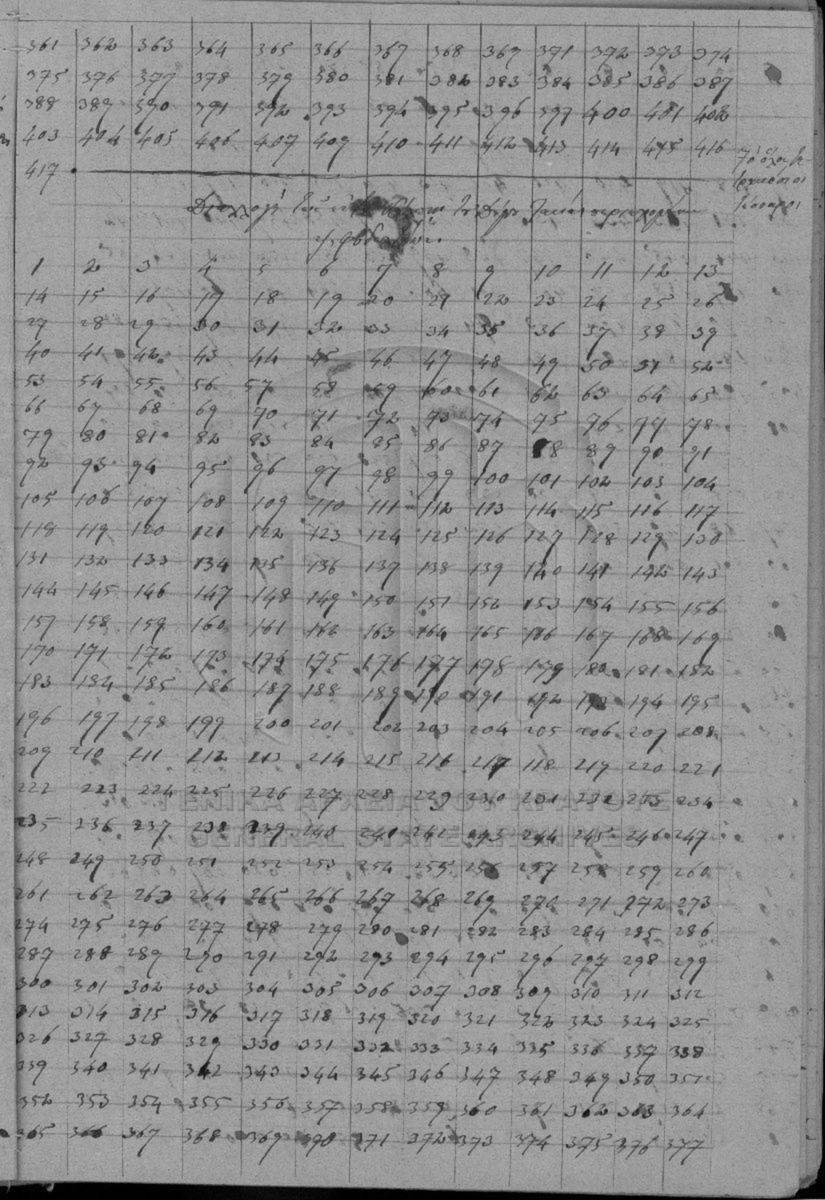 361 362 363 364 365 366 367 368 369 371 372 373 374
375 376 377 378 379 380 381 382 383 384 385 386 387
388 389 390 391 392 393 394 395 396 397 400 401 402
403 404 405 406 407 409 410 411 412 413 414 415 416
417
Διαλογή
ψηφοδόχου
1 2 3 4 5 6 7 8 9 10 11 12 13
14 15 16 17 18 19 20 21 22 23 24 25 26
27 28 29 30 31 32 33 34 35 36 37 38 39
40 41 42 43 44 45 46 47 48 49 50 51 52
53 54 55 56 57 58 59 60 61 62 63 64 65
66 67 68 69 70 71 72 73 74 75 76 77 78
79 80 81 82 83 84 85 86 87 88 89 90 91
92 93 94 95 96 97 98 99 100 101 102 103 104
105 106 107 108 109 110 111 112 113 114 115 116 117
118 119 120 121 122 123 124 125 126 127 128 129 130
131 132 133 134 135 136 137 138 139 140 141 142 143
144 145 146 147 148 149 150 151 152 153 154 155 156
157 158 159 160 161 162 163 164 165 166 167 168 169
170 171 172 173 174 175 176 177 178 179 180 181 182
183 184 185 186 187 188 189 190 191 192 193 194 195
196 197 198 199 200 201 202 203 204 205 206 207 208
209 210 211 212 213 214 215 216 217 118 219 220 221
222 223 224 225 226 227 228 229 230 231 232 233 234
ΓΕΝΙΚΑ ΑΡΧΕΙΑ ΤΟΥ ΚΡΑΤΟΥΣ
235 236 237 238 239 240 241 242 243 244 245 246 247
GENERAL STATE ARCHIVES
248 249 250 251 252 253 254 255 256 257 258 259 260
261 262 263 264 265 266 267 268 269 270 271 272 273
274 275 276 277 278 279 280 281 282 283 284 285 286
287 288 289 290 291 292 293 294 295 296 297 298 299
300 301 302 303 304 305 306 307 308 309 310 311 312
313 314 315 316 317 318 319 320 321 322 323 324 325
326 327 328 329 330 331 332 333 334 335 336 337 338
339 340 341 342 343 344 345 346 347 348 349 350 351
352 353 354 355 356 357 358 359 360 361 362 363 364
365 366 367 368 369 370 371 372 373 374 375 376 377